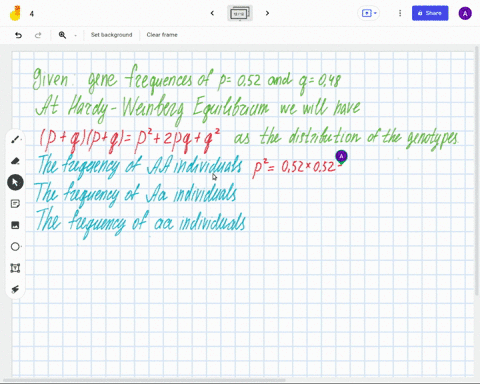 4
Share
A
Set background
Clear frame
given: gene frequences of p= 0.52 and q= 0,48
At Hardy-Weinberg Equilibrium we will have
(p+q)(p+q)= p²+2pq+q² as the distribution of the genotypes
The frequency of AA individuals p²= 0,52×0.52=
A
The frequency of Aa individuals
The frequency of aa individuals